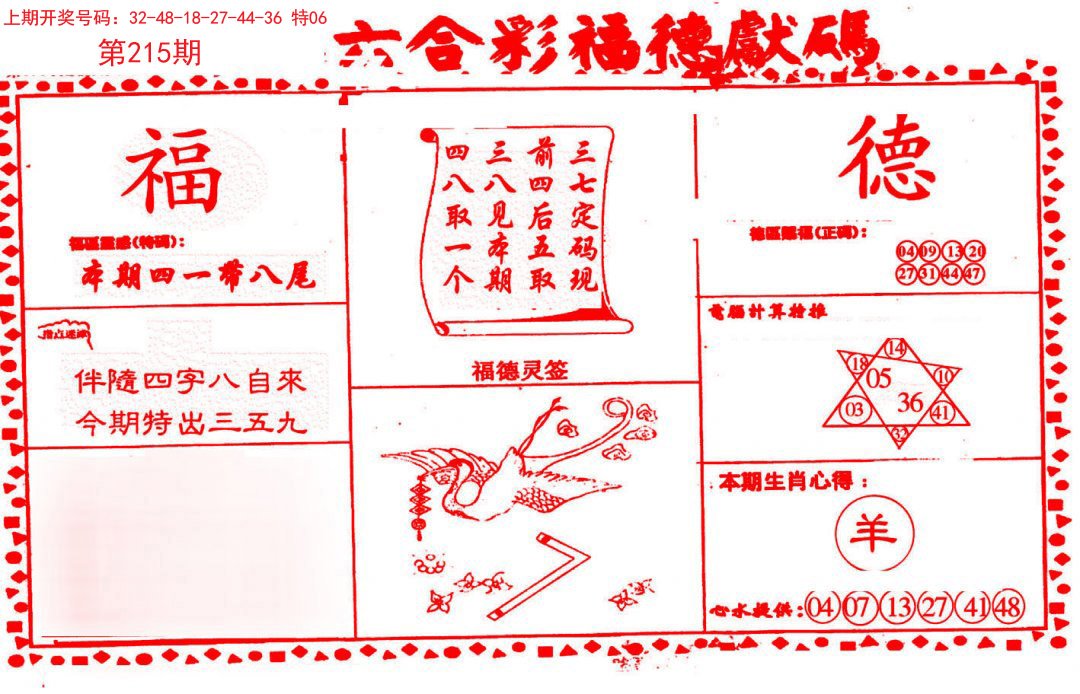 上期开奖号码：32-48-18-27-44-36 特06
第215期
六合彩福德獻碼
福
福區靈感(特碼)：
本期四一帶八尾
指点迷津
伴隨四字八自來
今期特出三五九
三七定码现
前四后五取
三八见本期
四八取一个
福德灵签
德
德區賜福(正碼)：
04 09 13 20
27 31 44 47
電腦計算特推
14
18 05 10
03 36 41
32
本期生肖心得：
羊
心水提供：04 07 13 27 41 48